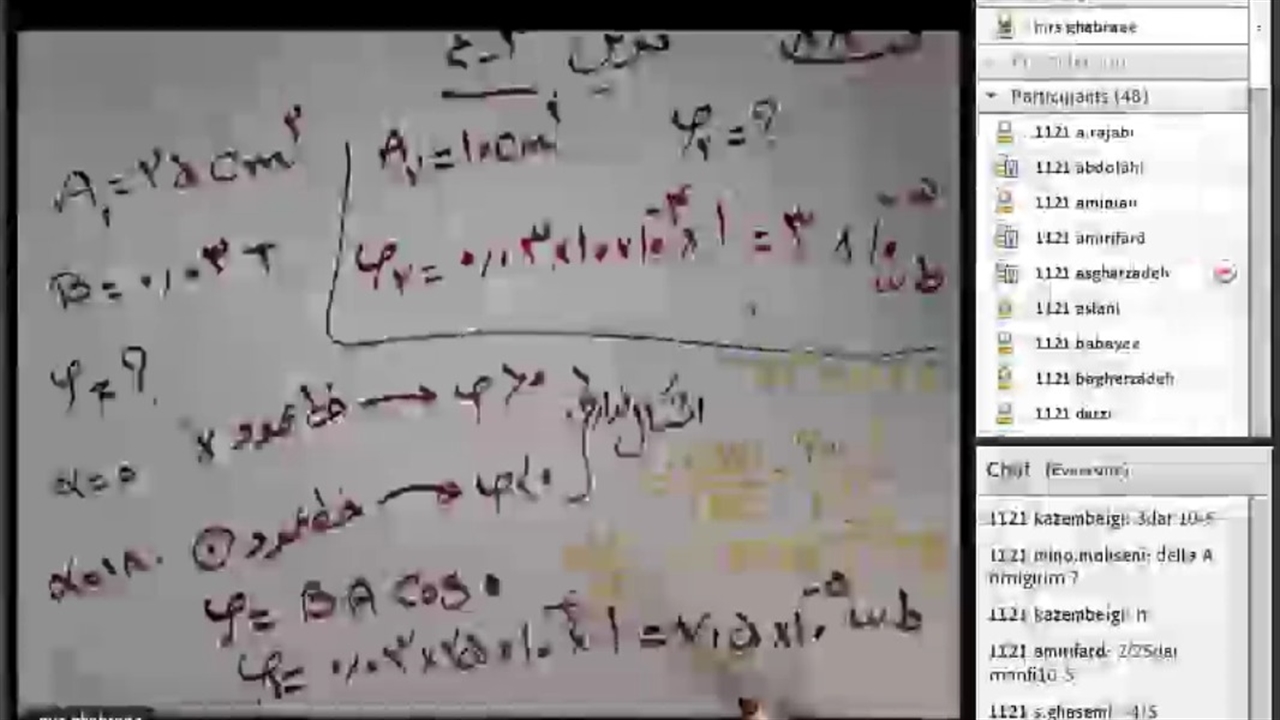 تمرین ۳-۴
A₁ = ۲۵ cm²
A₂ = ۱۰ cm²
φ₂ = ?
B = ۰/۰۳ T
φ₂ = ۰/۰۳ × ۱۰ × ۱۰⁻⁴ × ۱ = ۳ × ۱۰⁻⁵ wb
φ₁ = ?
× خط عمود → φ > ۰
α = ۰
⊙ خط عمود → φ < ۰
α = ۱۸۰
φ = BA Cos ۰
φ₁ = ۰/۰۳ × ۲۵ × ۱۰⁻⁴ × ۱ = ۷/۵ × ۱۰⁻⁵ wb
mrs ghabraee
Participants (48)
1121 a.rajabi
1121 abdolahi
1121 aminian
1121 amirifard
1121 asgharzadeh
1121 aslani
1121 babayee
1121 bagherzadeh
1121 darzi
Chat (Everyone)
1121 kazembeigi: 3dar 10-5
1121 mino.mohseni: delta A
nmigirim ?
1121 kazembeigi: n
1121 amirifard: 2/25dar
manfi10-5
1121 s.ghasemi: -4/5